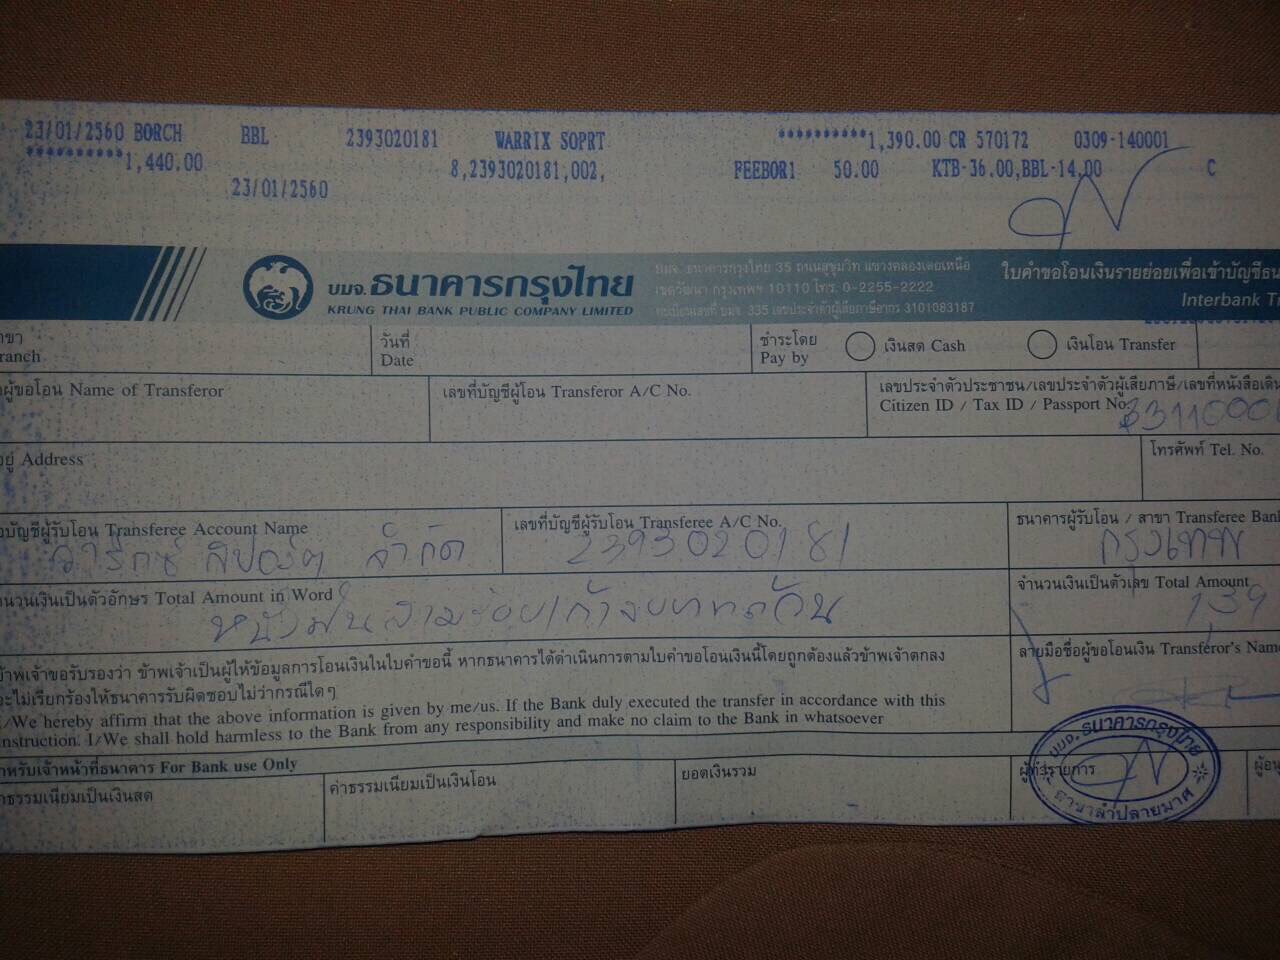 23/01/2560 BORCH BBL 2393020181 WARRIX SOPRT **********1,390.00 CR 570172 0309-140001
**********1,440.00 8,2393020181,002, FEEBOR1 50.00 KTB-36.00,BBL-14.00 C
23/01/2560
บมจ.ธนาคารกรุงไทย
KRUNG THAI BANK PUBLIC COMPANY LIMITED
บมจ. ธนาคารกรุงไทย 35 ถนนสุขุมวิท แขวงคลองเตยเหนือ
เขตวัฒนา กรุงเทพฯ 10110 โทร. 0-2255-2222
ทะเบียนเลขที่ บมจ. 335 เลขประจำตัวผู้เสียภาษีอากร 3101083187
ใบคำขอโอนเงินรายย่อยเพื่อเข้าบัญชีธน
Interbank T
ขา
ranch
วันที่
Date
ชำระโดย
Pay by
เงินสด Cash
เงินโอน Transfer
ผู้ขอโอน Name of Transferor
เลขที่บัญชีผู้โอน Transferor A/C No.
เลขประจำตัวประชาชน/เลขประจำตัวผู้เสียภาษี/เลขที่หนังสือเดิน
Citizen ID / Tax ID / Passport No.
ยู่ Address
โทรศัพท์ Tel. No.
อบัญชีผู้รับโอน Transferee Account Name
วาริกซ์ สปอร์ต จำกัด
เลขที่บัญชีผู้รับโอน Transferee A/C No.
2393020181
ธนาคารผู้รับโอน / สาขา Transferee Bank
กรุงเทพ
นวนเงินเป็นตัวอักษร Total Amount in Word
หนึ่งพันสามร้อยเก้าสิบบาทถ้วน
จำนวนเงินเป็นตัวเลข Total Amount
139
ข้าพเจ้าขอรับรองว่า ข้าพเจ้าเป็นผู้ให้ข้อมูลการโอนเงินในใบคำขอนี้ หากธนาคารได้ดำเนินการตามใบคำขอโอนเงินนี้โดยถูกต้องแล้วข้าพเจ้าตกลง
จะไม่เรียกร้องให้ธนาคารรับผิดชอบไม่ว่ากรณีใดๆ
I/We hereby affirm that the above information is given by me/us. If the Bank duly executed the transfer in accordance with this
nstruction. I/We shall hold harmless to the Bank from any responsibility and make no claim to the Bank in whatsoever
ลายมือชื่อผู้ขอโอนเงิน Transferor's Name
าหรับเจ้าหน้าที่ธนาคาร For Bank use Only
าธรรมเนียมเป็นเงินสด
ค่าธรรมเนียมเป็นเงินโอน
ยอดเงินรวม
ผู้ทำรายการ
ผู้อนุ
บมจ. ธนาคารกรุงไทย
สาขาลำปลายมาศ